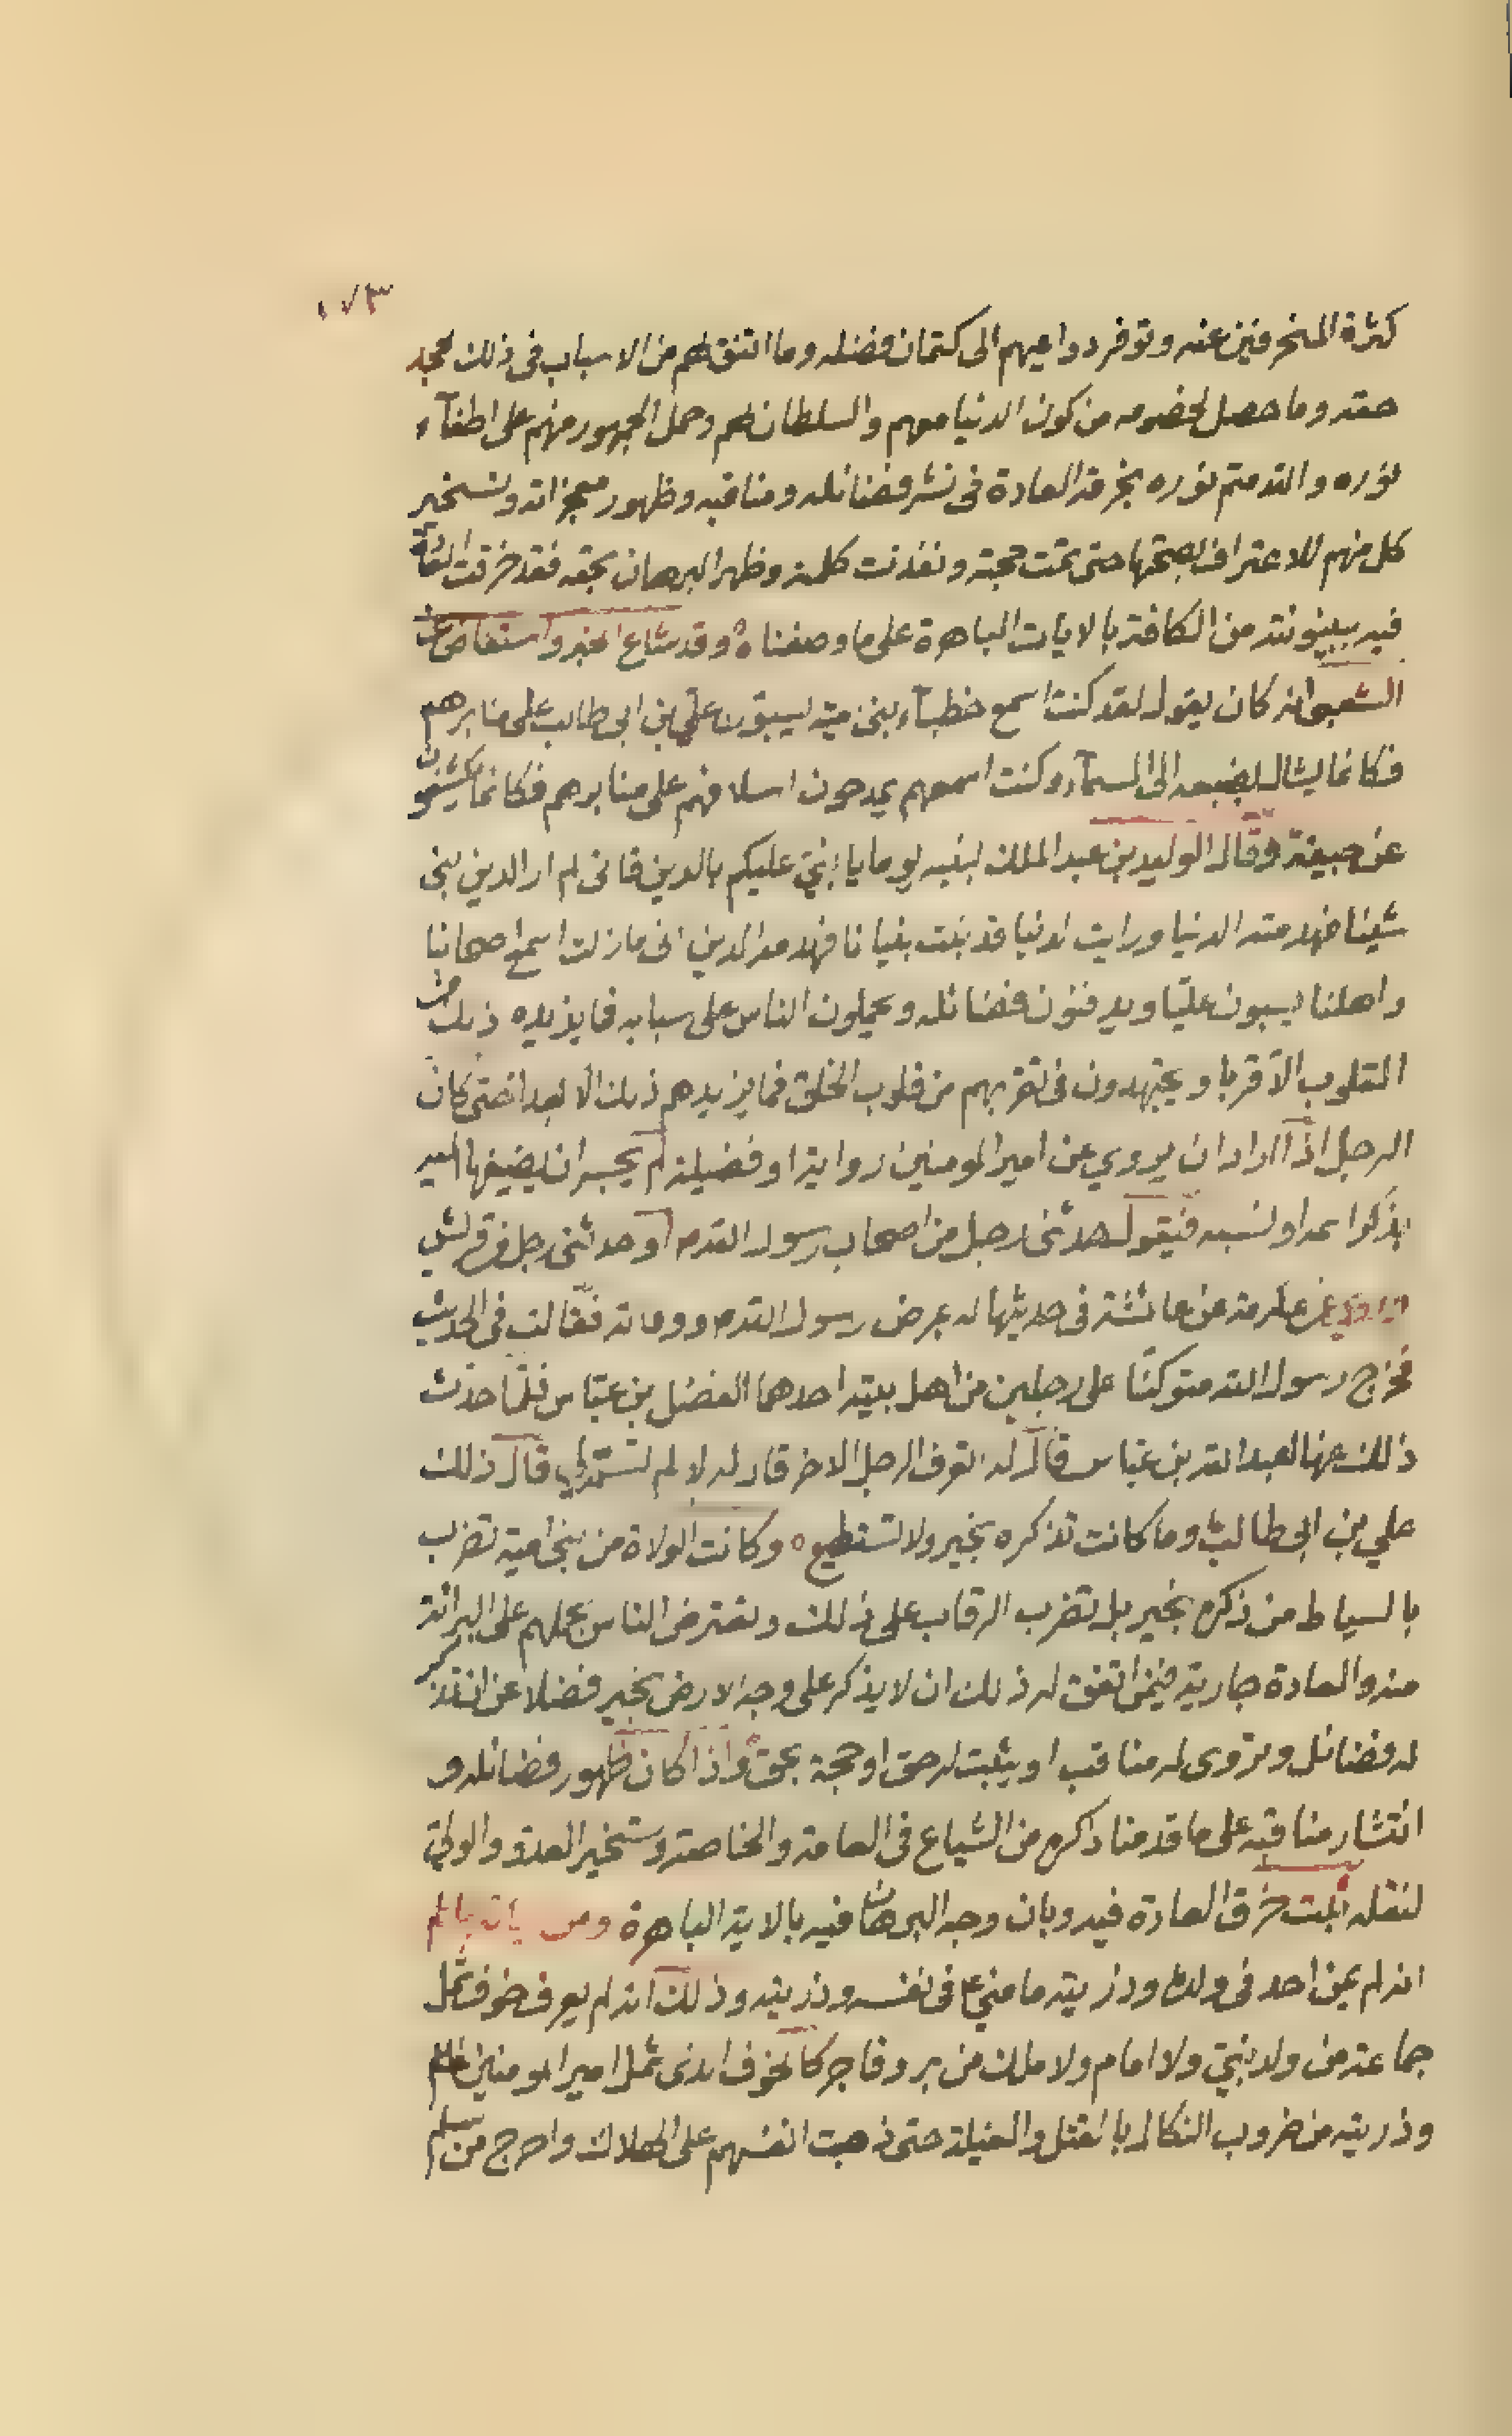 ١٧٣
كثرة المنحرفين عنه وتوفر دواعيهم الى كتمان فضله وما اتفق لهم من الاسباب فى ذلك لجحد
حقه وما حصل لخصومه من كون الدنيا معهم والسلطان لهم وحمل الجمهور منهم على اطفآء
نوره والله متم نوره بخرقه العادة فى نشر فضائله ومناقبه وظهور معجزاته وتسخير
كل منهم للاعتراف بصحتها حتى تمت حجته ونفذت كلمته وظهر البرهان بحقه فقد خرقت العادة
فيه ببينونته من الكافة بالايات الباهرة على ما وصفناه وقد شاع الخبر واستفاض عن
الشعبى انه كان يقول لقد كنت اسمع خطبآء بنى امية يسبون على بن ابى طالب على منابرهم
فكانما يشال بضبعه الى السمآء وكنت اسمعهم يمدحون اسلافهم على منابرهم فكانما يكشفون
عن جيفة وقال الوليد بن عبد الملك لبنيه يوما يا بنى عليكم بالدين فانى لم ار الدين بنى
شيئا فهدمته الدنيا ورايت الدنيا قد بنت بنيانا فهدمه الدين انى ما زلت اسمع اصحابنا
واهلنا يسبون عليا ويدفنون فضائله ويحملون الناس على سبابه فما يزيده ذلك من
القلوب الا قربا ويجتهدون فى تقربهم من قلوب الخلق فما يزيدهم ذلك الا بعدا حتى كان
الرجل اذا اراد ان يروي عن امير المومنين رواية او فضيلة لم يجسر ان يضيفها اليه
بذكر اسمه او نسبه فيقول حدثنى رجل من اصحاب رسول الله ص او حدثنى رجل من قريش
عن عكرمة عن عائشة فى حديثها له بمرض رسول الله ص ووفاته فقالت فى الحديث
فخرج رسول الله متوكئا على رجلين من اهل بيته احدهما الفضل بن عباس فلما حدث
ذلك عنها لعبد الله بن عباس قال له اتعرف الرجل الاخر قال له لا لم تسمه لي قال ذلك
علي بن ابى طالب وما كانت تذكره بخير ولا تستطيع ه وكانت الولاة من بنى امية تضرب
بالسياط من ذكره بخير بل تضرب الرقاب على ذلك وتعترض الناس بحملهم على البرائة
منه والعادة جارية فيمن اتفق له ذلك ان لا يذكر على وجه الارض بخير فضلا عن ان تذكر
له فضائل وتروى له مناقب او يثبت له حق او حجة بحق واذا كان ظهور فضائله و
انتشار مناقبه على ما قدمنا ذكره من الشياع فى العامة والخاصة وتسخير العدو والولي
لنقله ثبت خرق العادة فيه وبان وجه البرهان فيه بالاية الباهرة ومن
انه لم يمن احد فى ولده وذريته ما منى ع فى نفسه وذريته وذلك انه لم يعرف خوف شمل
جماعة من ولد نبى ولا امام ولا ملك من بر وفاجر كالخوف الذى شمل امير المومنين
وذريته من ضروب النكال بالقتل والغيلة حتى ذهبت انفسهم على الهلاك واحرج من